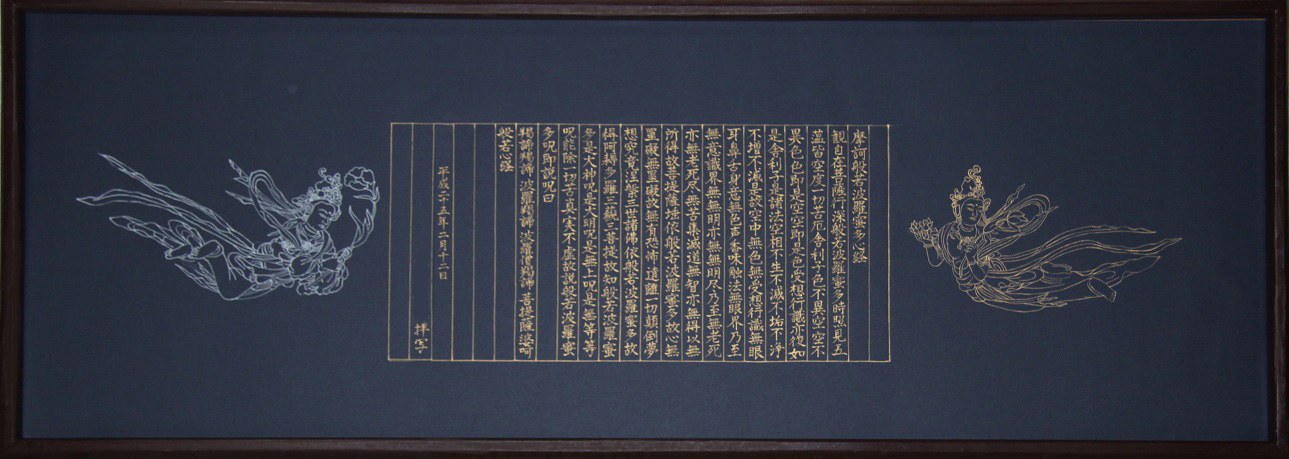 摩訶般若波羅蜜多心経
観自在菩薩行深般若波羅蜜多時照見五
蘊皆空度一切苦厄舎利子色不異空空不
異色色即是空空即是色受想行識亦復如
是舎利子是諸法空相不生不滅不垢不浄
不増不減是故空中無色無受想行識無眼
耳鼻舌身意無色声香味触法無眼界乃至
無意識界無無明亦無無明尽乃至無老死
亦無老死尽無苦集滅道無智亦無得以無
所得故菩提薩埵依般若波羅蜜多故心無
罣礙無罣礙故無有恐怖遠離一切顛倒夢
想究竟涅槃三世諸佛依般若波羅蜜多故
得阿耨多羅三藐三菩提故知般若波羅蜜
多是大神呪是大明呪是無上呪是無等等
呪能除一切苦真実不虚故説般若波羅蜜
多呪即説呪曰
羯諦羯諦 波羅羯諦 波羅僧羯諦 菩提薩婆呵
般若心経
平成二十五年二月十二日
拝写